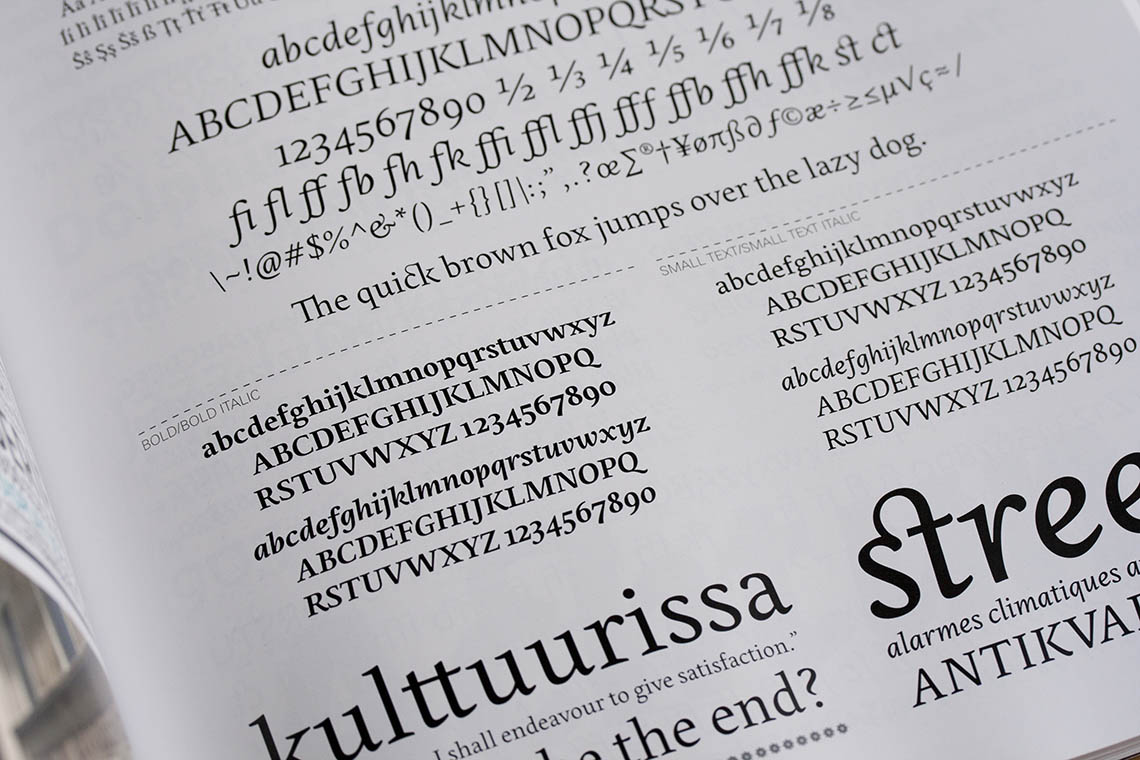 abcdefghijklm
ABCDEFGHIJKLMNOPQRST
1234567890 ½ ⅓ ¼ ⅕ ⅙ ⅐ ⅛
fi fl ff fb fh fk ffi ffl ffj fff ffb ffh ffk st ct
\~!@#$%^&*()_+{}[]|:;” ,.?œ∑®†¥øπß∂ƒ©æ÷≥≤µ√ç≈/
The quick brown fox jumps over the lazy dog.
BOLD/BOLD ITALIC
abcdefghijklmnopqrstuvwxyz
ABCDEFGHIJKLMNOPQ
RSTUVWXYZ 1234567890
abcdefghijklmnopqrstuvwxyz
ABCDEFGHIJKLMNOPQ
RSTUVWXYZ 1234567890
SMALL TEXT/SMALL TEXT ITALIC
abcdefghijklmnopqrstuvwxyz
ABCDEFGHIJKLMNOPQ
RSTUVWXYZ 1234567890
abcdefghijklmnopqrstuvwxyz
ABCDEFGHIJKLMNOPQ
RSTUVWXYZ 1234567890
kulttuurissa
I shall endeavour to give satisfaction.”
the end?
stree
alarmes climatiques
ANTIKVA